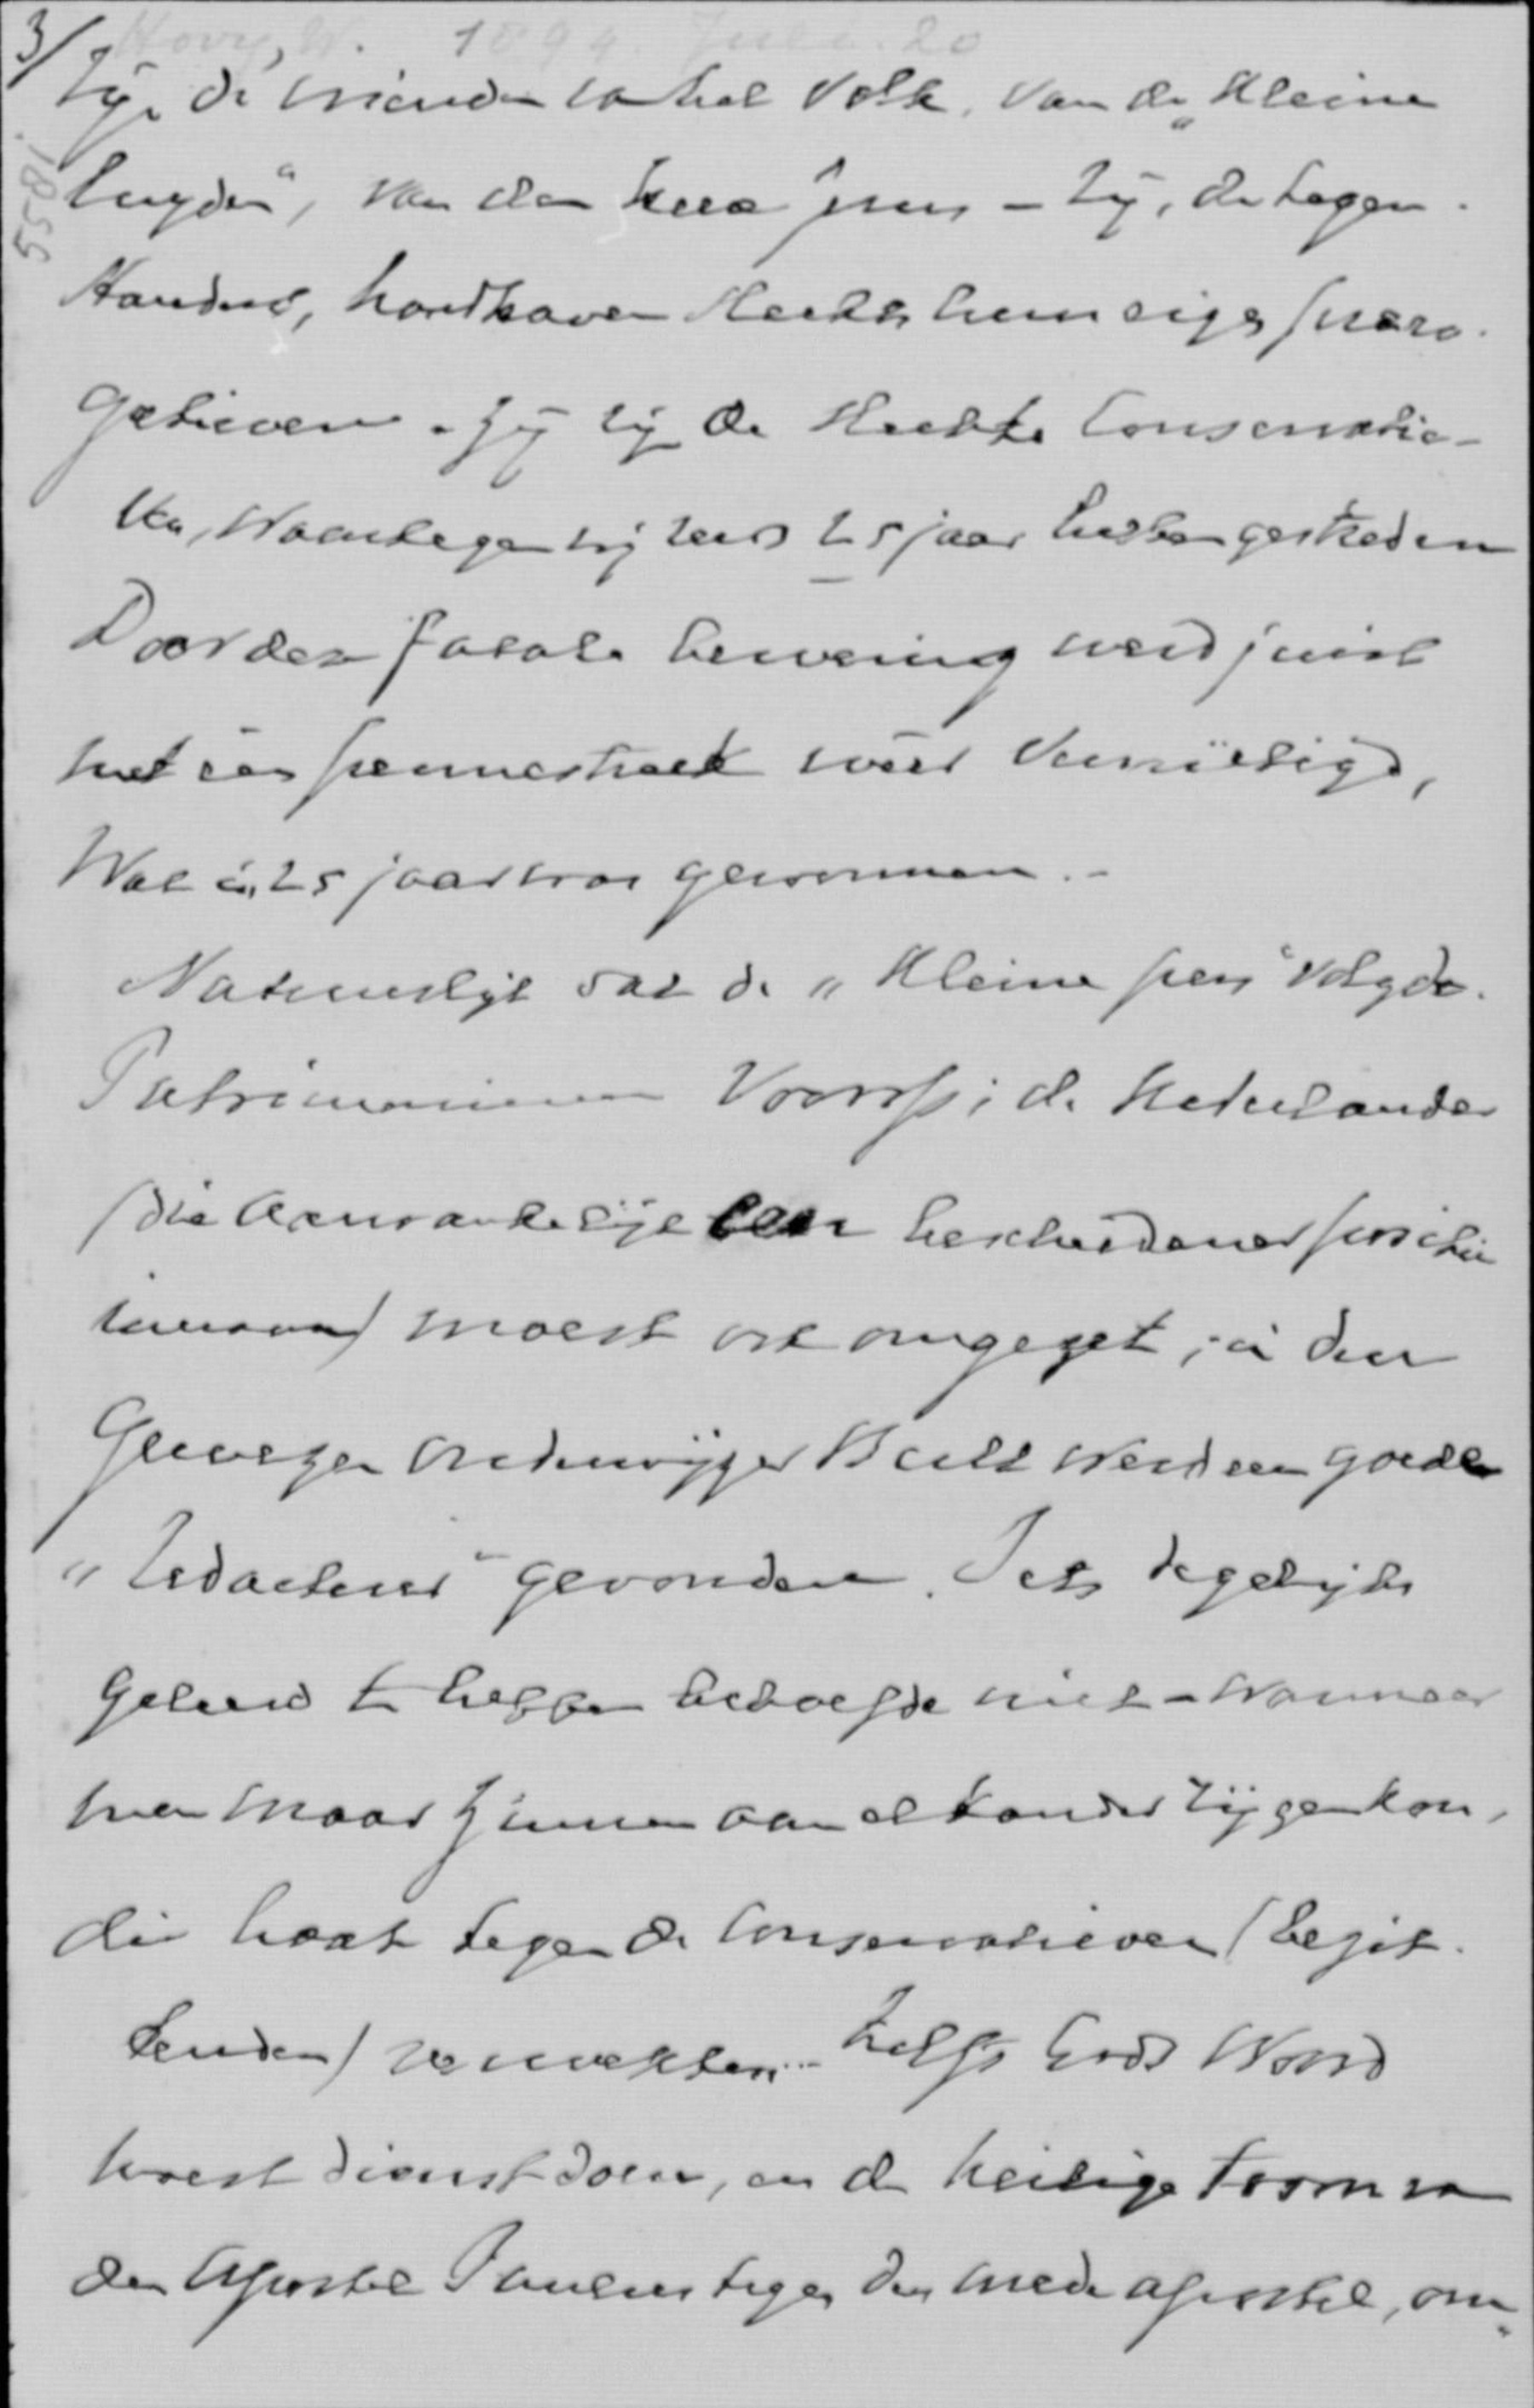 Hovy, W. 1894 Juli. 20
3/
5581
Zijn de vrienden van het Volk, van de „kleine
luyden", van den kera pers – Zij, de tegen-
standers, handhaven slechts hun eigen prero-
gatieven. Zij zijn de slechte Conservatie-
ven, waartegen wij reeds 25 jaar hebben gestreden
Door deze fatale bewering werd juist
met een pennestreek weer vernietigd,
Wat in 25 jaar was gewonnen. –
Natuurlijk dat de „Kleine pers" volgde.
Patrimonium Voorop; de Nederlander
(die aanvankelijk een bescheidener positie
innam) moest ook omgezet, in den
Gewezen onderwijzer Bull werd een goede
„Redacteur" gevonden. Iets degelijks
geleerd te hebben behoefde niet – wanneer
men maar zinnen aan elkander rijgen kon,
die haat tegen de Conservatieven (bezit-
tenden) verwekken... Zelfs Gods Woord
moest dienst doen, en de heilige toorn van
den Apostel Paulus tegen den mede apostel, om